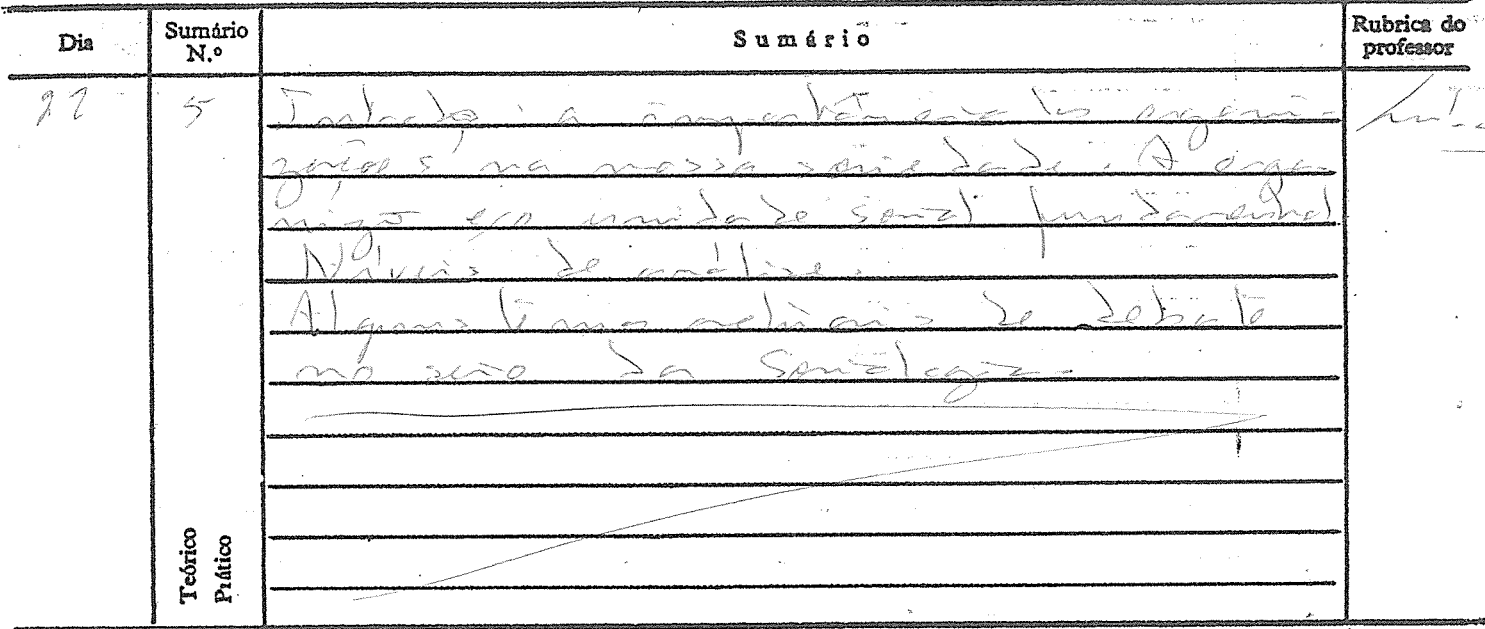 Dia
Sumário N.º
Sumário
Rubrica do professor
5
a importância das organi-
zações na nossa sociedade. A orga-
nização unidade social fundamental
Níveis de análise.
Alguns temas actuais de debate
no seio da Sociologia.
Teórico
Prático